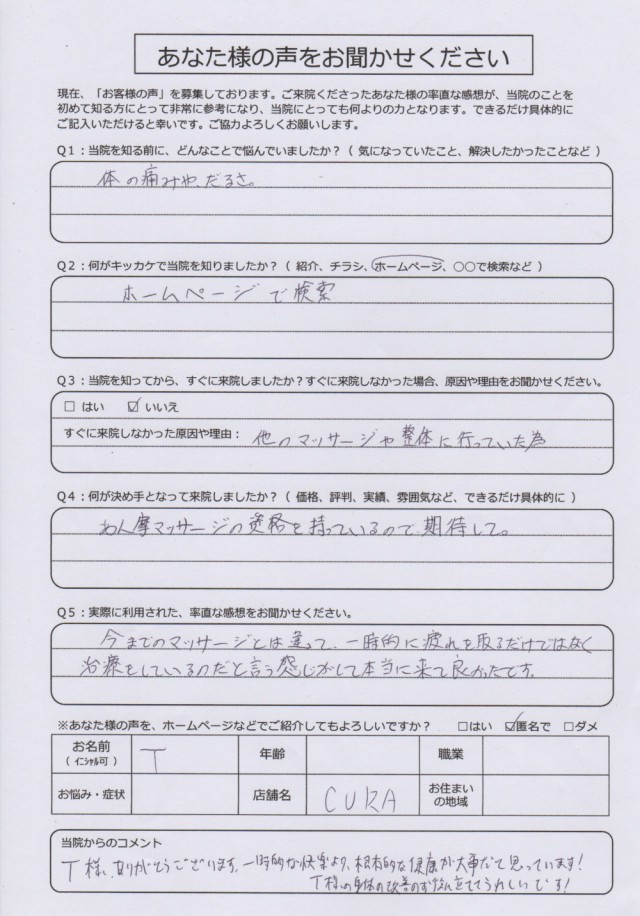 あなた様の声をお聞かせください
現在、「お客様の声」を募集しております。ご来院くださったあなた様の率直な感想が、当院のことを
初めて知る方にとって非常に参考になり、当院にとっても何よりの力となります。できるだけ具体的に
ご記入いただけると幸いです。ご協力よろしくお願いします。
Q1：当院を知る前に、どんなことで悩んでいましたか？（ 気になっていたこと、解決したかったことなど ）
体の痛みや、だるさ。
Q2：何がキッカケで当院を知りましたか？（ 紹介、チラシ、ホームページ、○○で検索など ）
ホームページで検索
Q3：当院を知ってから、すぐに来院しましたか？すぐに来院しなかった場合、原因や理由をお聞かせください。
□ はい ☑ いいえ
すぐに来院しなかった原因や理由： 他のマッサージや整体に行っていた為
Q4：何が決め手となって来院しましたか？（ 価格、評判、実績、雰囲気など、できるだけ具体的に ）
あん摩マッサージの資格を持っているので、期待して。
Q5：実際に利用された、率直な感想をお聞かせください。
今までのマッサージとは違って、一時的に疲れを取るだけではなく
治療をしているのだと言う感じがして本当に来て良かったです。
※あなた様の声を、ホームページなどでご紹介してもよろしいですか？ □はい ☑匿名で □ダメ
お名前 T 年齢 職業
（ ｲﾆｼｬﾙ可 ）
お悩み・症状 店舗名 CURA お住まい
の地域
当院からのコメント
T様、ありがとうございます。一時的な快楽より、根本的な健康が大事だと思っています！
T様の身体の改善のお手伝いできてうれしいです！